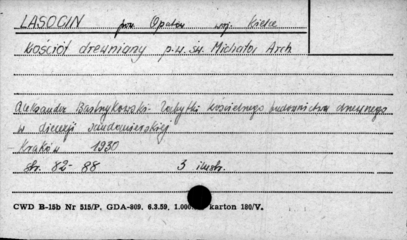 LASOCIN pow. Opatów woj. Kielce
Kościół drewniany p.w. św. Michała Arch
Aleksander Bastrzykowski: Zabytki kościelnego budownictwa drewnego
w diecezji sandomierskiej
Kraków 1930
str. 82-88 3 ilustr.
CWD B-15b Nr 515/P. GDA-809. 6.3.59, 1.000 karton 180/V.